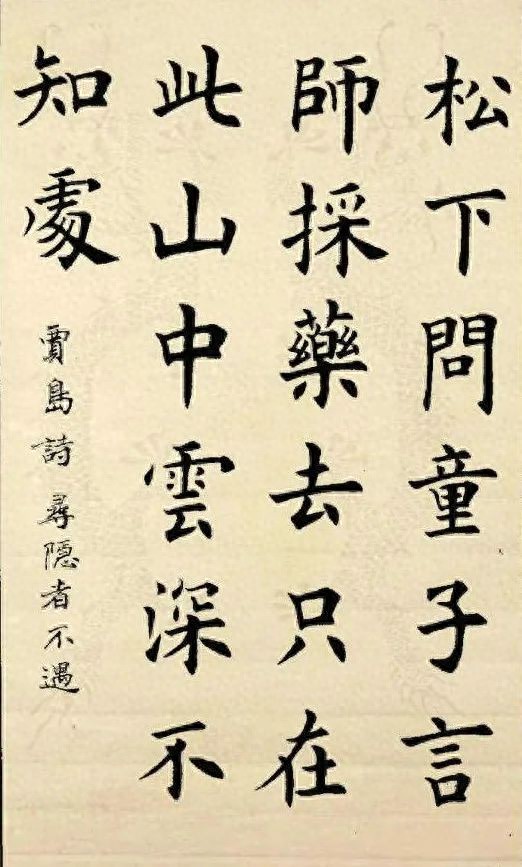 松下問童子言
師採藥去只在
此山中雲深不
知處
賈島詩 尋隱者不遇